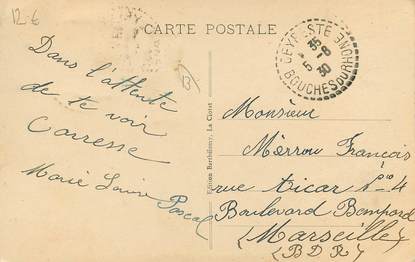 12-6
CARTE POSTALE
CEYRESTE
15 8
5 30
BOUCHES DU RHONE
Dans l'attente
de te voir
Carresse
Marie Louise Pascal
Editions Barthélemy, La Ciotat
Monsieur
Mèrrou Français
rue Ticar L no 4
Boulevard Bompard
(Marseille)
(B D R)